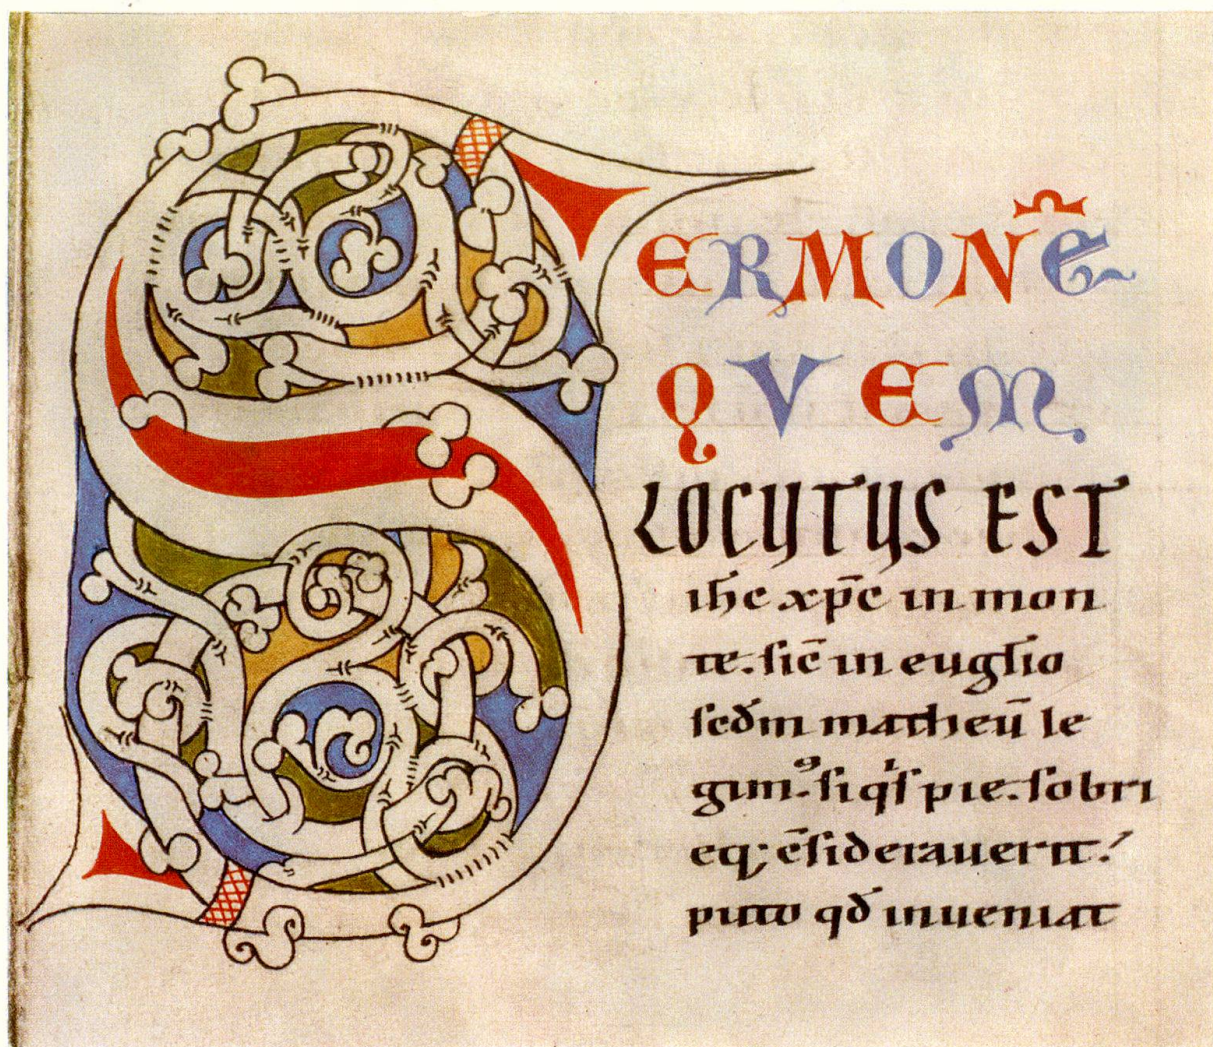 SERMONE̅
QVEM
LOCUTUS EST
ih̅c xp̅c in mon
te. sic̅ in eug̅lio
scd̅m matheu̅ le
gimꝰ. siqⁱs pie. sobri
eq; c̅siderauerit.
puto qd̅ inueniat